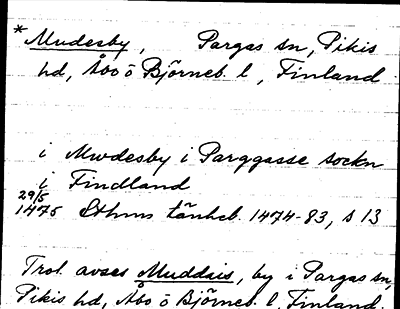 *Mudesby, Pargas sn, Pikis
hd, Åbo ō Björneb. l, Finland
i Mwdesby i Parggasse sockn
i Findland
29/5
1475 Sthms tänkeb. 1474-83, s 13
Trol. avses Muddais, by i Pargas sn,
Pikis hd, Åbo ō Björneb. l. Finland.